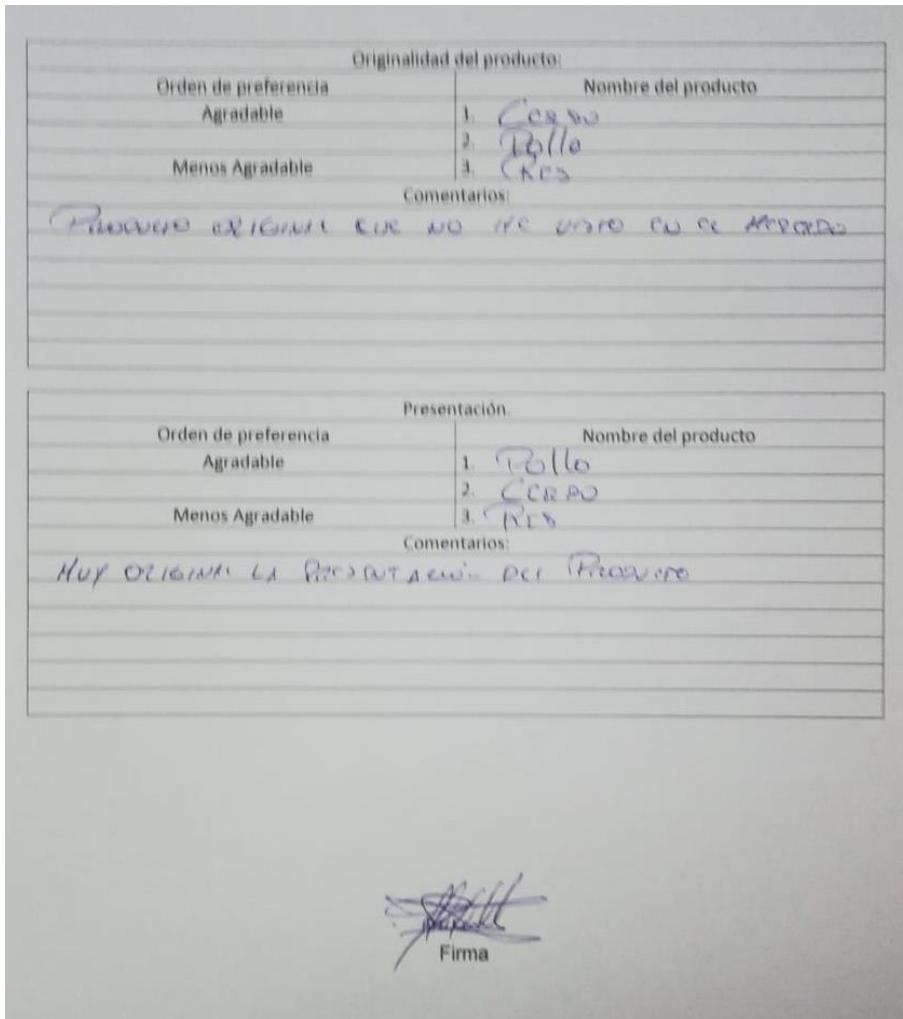 Originalidad del producto:
Orden de preferencia Nombre del producto
Agradable 1. Cerdo
2. Pollo
Menos Agradable 3. Res
Comentarios:
PRODUCTO ORIGINAL QUE NO HE VISTO EN EL MERCADO
Presentación.
Orden de preferencia Nombre del producto
Agradable 1. Pollo
2. CERDO
Menos Agradable 3. RES
Comentarios:
MUY ORIGINAL LA PRESENTACIÓN DEL PRODUCTO
Firma